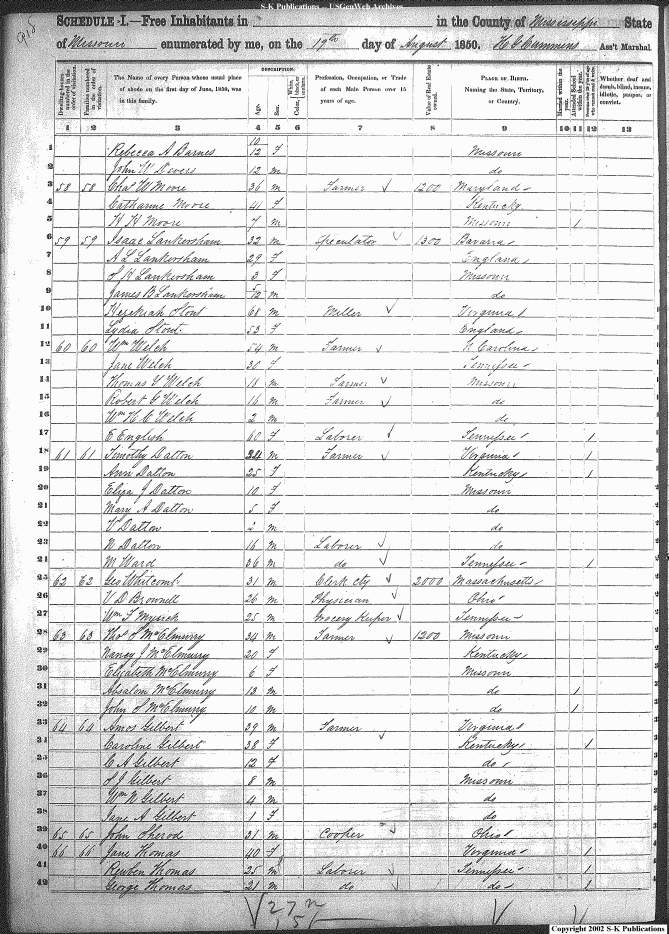 S-K Publications - USGenWeb Archives
SCHEDULE I.—Free Inhabitants in in the County of Mississippi State
of Missouri enumerated by me, on the 19th day of August 1850. Ass't Marshal
915
Dwelling-houses numbered in the order of visitation.
Families numbered in the order of visitation.
The Name of every Person whose usual place of abode on the first day of June, 1850, was in this family.
DESCRIPTION.
Age.
Sex.
Color, White, black, or mulatto.
Profession, Occupation, or Trade of each Male Person over 15 years of age.
Value of Real Estate owned.
PLACE OF BIRTH. Naming the State, Territory, or Country.
Married within the year.
Attended School within the year.
Whether deaf and dumb, blind, insane, idiotic, pauper, or convict.
1 2 3 4 5 6 7 8 9 10 11 12 13
1 Rebecca A Barnes 10/12 F Missouri
2 John W Divers 12 m do
3 58 58 Chas W Moore 36 m Farmer 1200 Maryland
4 Catharine Moore 41 F Kentucky
5 H H Moore 7 m Missouri 1
6 59 59 Isaac Lankersham 32 m Speculator 1300 Bavaria
7 A L Lankersham 29 F England
8 Lankersham 3 F Missouri
9 James B Lankersham 5/12 m do
10 Hezekiah Stout 68 m Miller Virginia
11 Lydia Stout 53 F England
12 60 60 Wm Welch 54 m Farmer N Carolina
13 Jane Welch 30 F Tennessee
14 Thomas Y Welch 18 m Farmer Missouri
15 Robert G Welch 16 m Farmer do
16 Wm H C Welch 2 m do
17 E English 60 F Laborer Tennessee 1
18 61 61 Timothy Dalton 34 m Farmer Virginia 1
19 Ann Dalton 25 F Kentucky 1
20 Eliza J Dalton 10 F Missouri
21 Mary A Dalton 5 F do
22 V Dalton 2 m do
23 N Dalton 16 m Laborer do
24 M Ward 36 m do Tennessee 1
25 62 62 Geo Whitcomb 31 m Clerk cty 2000 Massachusetts
26 V D Brownell 26 m Physician Ohio
27 Wm S Myrick 25 m Grocery Keeper Tennessee
28 63 63 Thos S McElmurry 34 m Farmer 1200 Missouri
29 Nancy J McElmurry 20 F Kentucky
30 Elizabeth McElmurry 6 F Missouri
31 Absalom McElmurry 13 m do 1
32 John S McElmurry 10 m do 1
33 64 64 Amos Gilbert 39 m Farmer Virginia
34 Caroline Gilbert 38 F Kentucky 1
35 C A Gilbert 12 F do
36 J Gilbert 8 m Missouri
37 Wm N Gilbert 4 m do
38 Jane A Gilbert 1 F do
39 65 65 John Sherod 31 m Cooper Ohio
40 66 66 Jane Thomas 40 F Virginia 1
41 Reuben Thomas 25 m Laborer Tennessee 1
42 George Thomas 21 m do do 1
27 m
15 f
Copyright 2002 S-K Publications